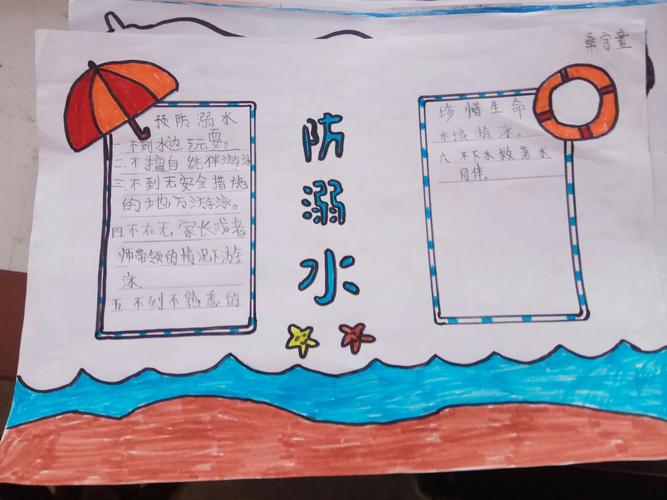 桑宇童
预防溺水
一不到水边玩耍。
二.不擅自结伴游泳
三不到无安全措施
的地方游泳。
四不在无家长或老
师带领的情况下游
泳.
五不到不熟悉的
防溺水
珍惜生命
水域游泳.
六不下水救落水
同伴.